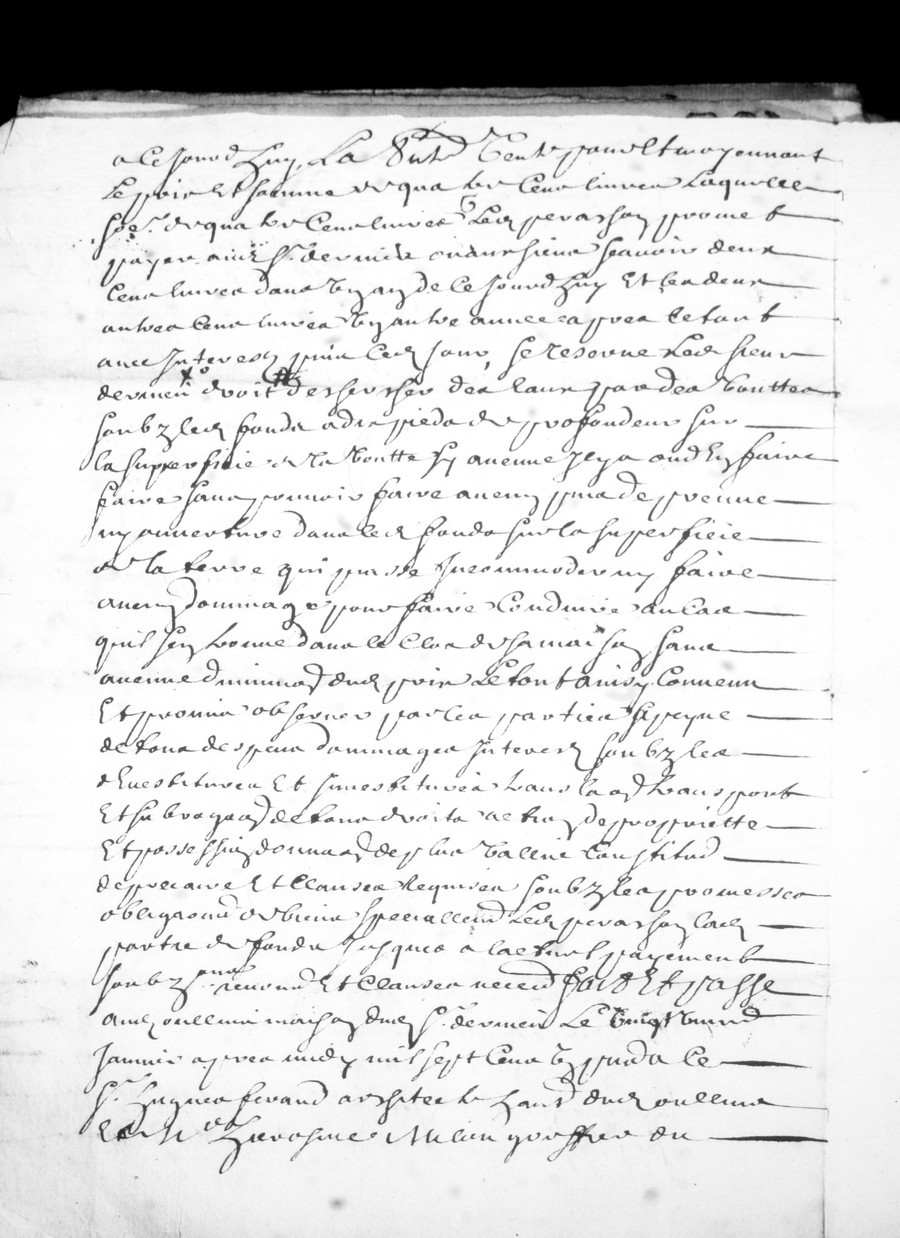 a ce jourd'huy, La Pnte Vente pour Et moyennant
Le prix Et somme de quatre Cens livres Laquelle
so.e de quatre Cens livres Led perasson promet
payer aud Sr. dermieu ou aux siens scavoir deux
Cens livres dans Un an de Ce jourd'huy Et les deux
autres Cens livres Un autre année apres Le tout
avec Interests puis led jour, se reserve Led sieur
dermieu droit de chercher des Eaux par des Vouttes
soubz led fonds a dix pieds de profondeur sur
la superficie de la Voutte sy aucune Il y a ou d'En faire
faire sans pouvoir faire aucun
ny ouverture dans led fonds sur la superficie
de la terre qui puisse Incommoder ny faire
aucun dommage pour faire Conduire au Cas
qu'il s'en trouve dans le Clos de sa maison sans
aucune diminuon dud prix Le tout ainsy Convenu
Et promis observer par les parties a peyne
de tous despens dommages Interests soubz les
devestitures Et Investitures translaon transport
Et subrogaon de tous droits actions de proprietté
Et possession donnaon de plus Valleue Constitud
de precaire Et Clauses Requises soubz les promesses
obligaons de biens speciallemt Led perasson lad
partie de fonds jusques a l'actuel payement
soubz renond Et Clauses necess fait Et passé
aud oullins maison dud Sr. dermieu Le
janvier apres midy mil sept Cens Un pnts Le
Sr. hugues ferrand architecte hant dud oullins
Et Me hierosme Milan greffier du